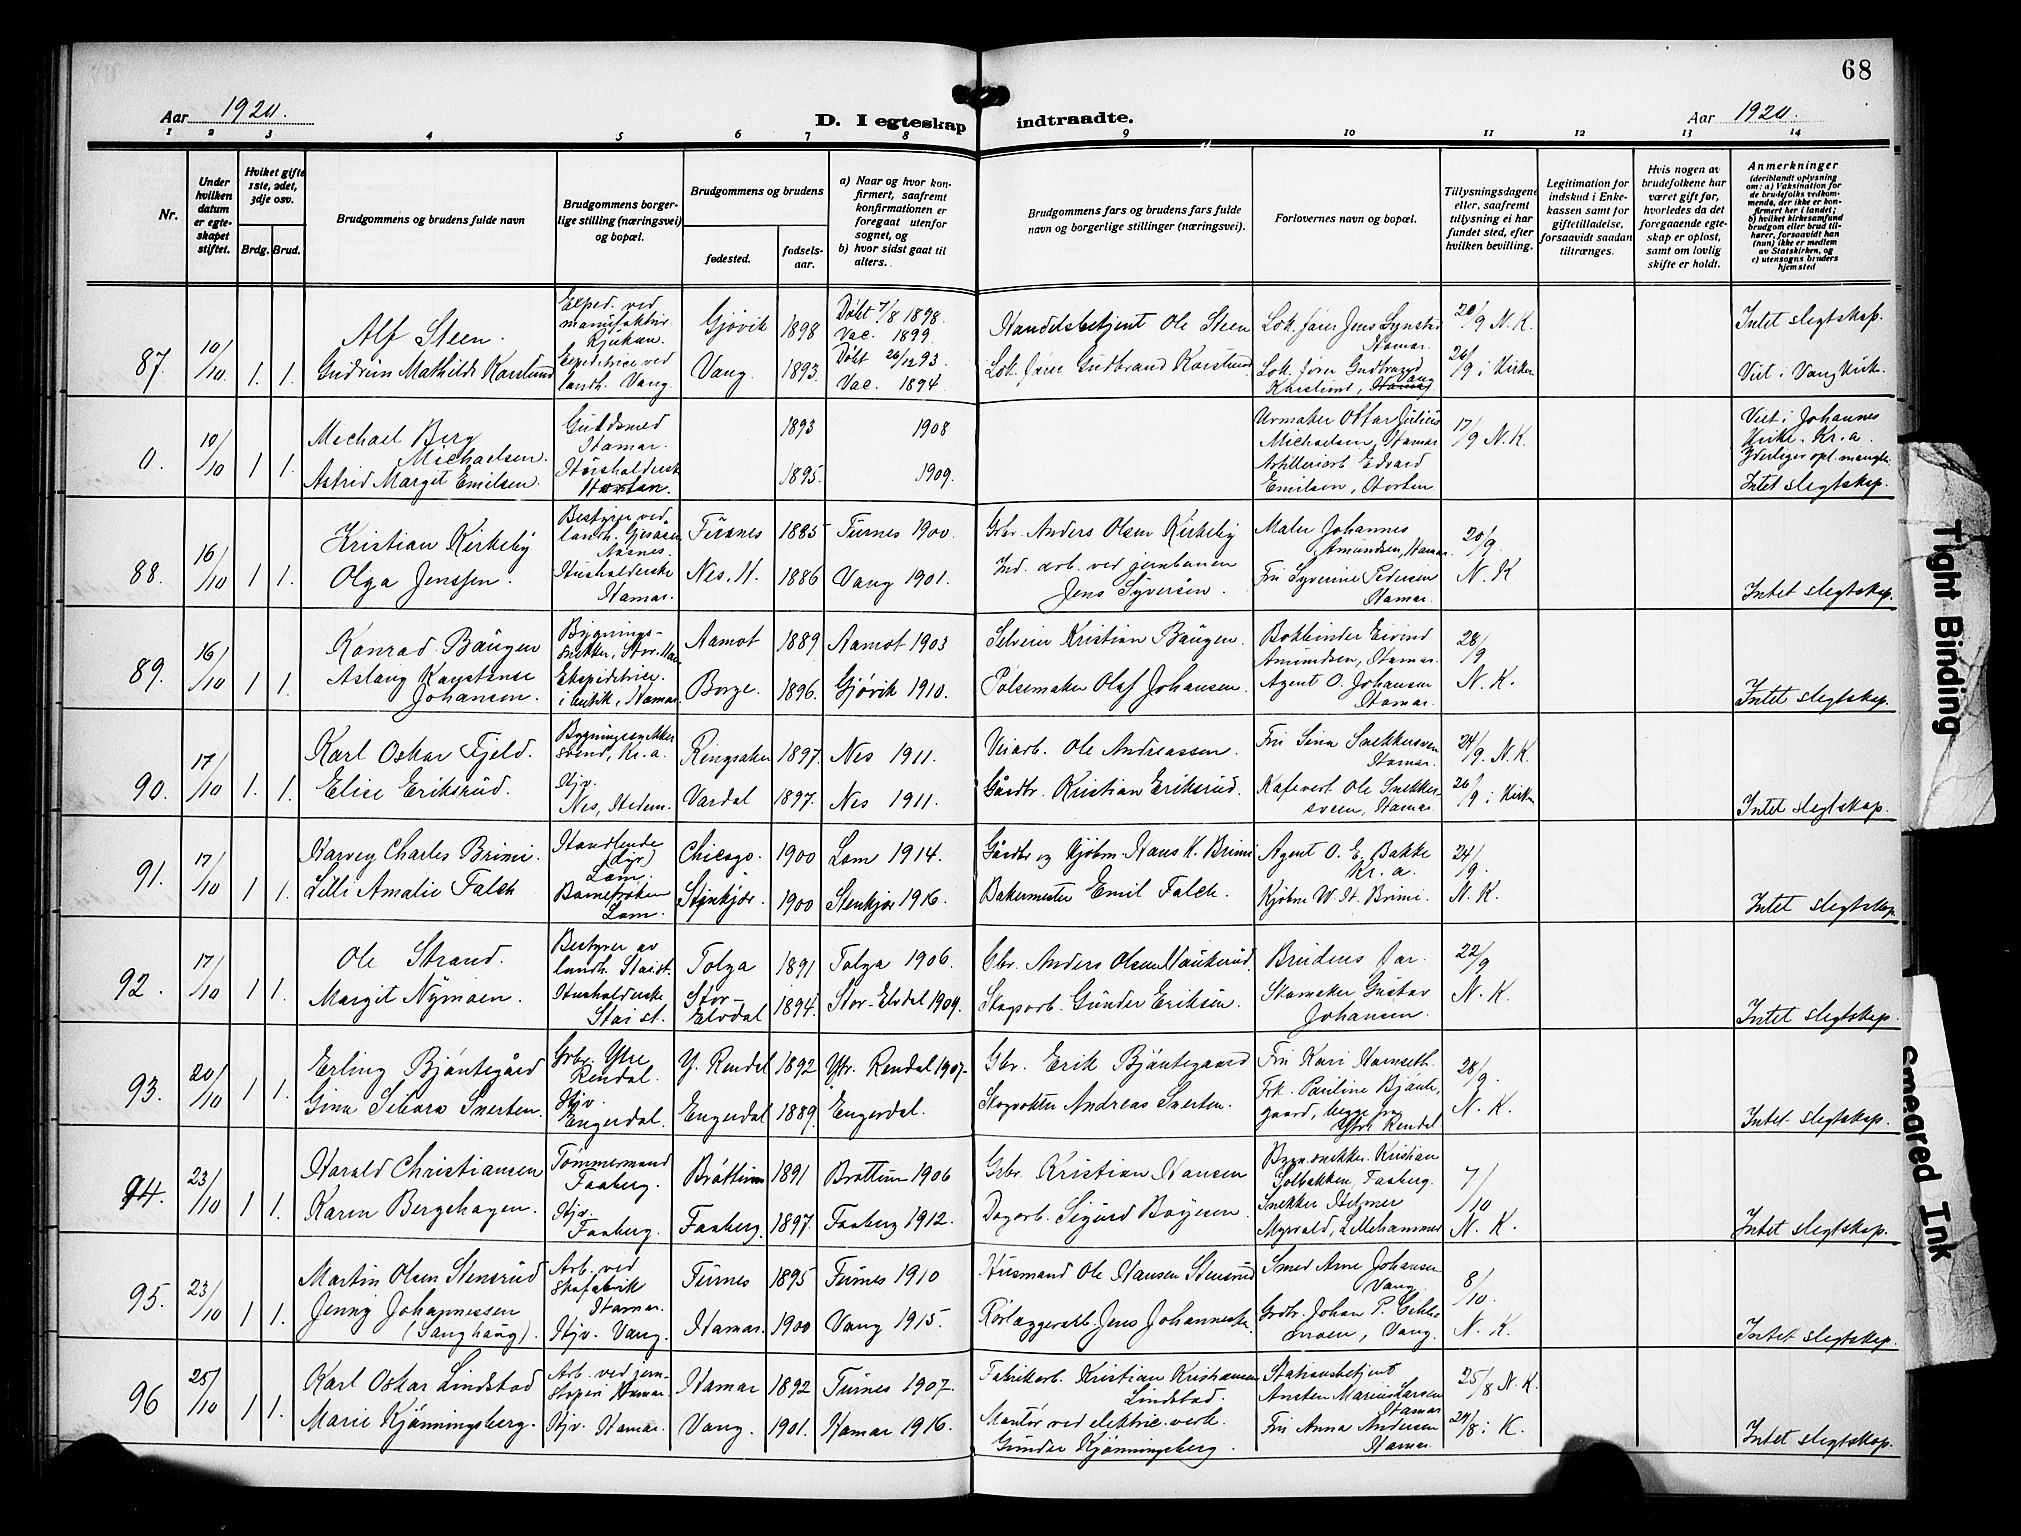 68
Aar 1920.
D. I egteskap indtraadte.
Aar 1920.
1 2 3 4 5 6 7 8 9 10 11 12 13 14
Nr.
Under hvilken datum er egteskapet stiftet.
Hviket gifte 1ste, 2det, 3dje osv.
Brdg. Brud.
Brudgommens og brudens fulde navn
Brudgommens borgerlige stilling (næringsvei) og bopæl.
Brudgommens og brudens
fødested.
fødselsaar.
a) Naar og hvor konfirmert, saafremt konfirmationen er foregaat utenfor sognet, og
b) hvor sidst gaat til alters.
Brudgommens fars og brudens fars fulde navn og borgerlige stillinger (næringsvei).
Forlovernes navn og bopæl.
Tillysningsdagene eller, saafremt tillysning ei har fundet sted, efter hvilken bevilling.
Legitimation for indskud i Enkekassen samt for giftetilladelse, forsaavidt saadan tiltrænges.
Hvis nogen av brudefolkene har været gift før, hvorledes da det foregaaende egteskap er opløst, samt om lovlig skifte er holdt.
Anmerkninger
(deriblandt oplysning om: a) Vaksination for de brudefolks vedkommende, der ikke er konfirmert her i landet; b) hvilket kirkesamfund brudgom eller brud tilhører, forsaavidt han (hun) ikke er medlem av Statskirken, og c) utensogns bruders hjemsted
87. 10/10. 1. 1.
Alf Steen. Exped. ved manufaktur. Gjøvik 1898 Døbt 7/8 1898. Vac. 1899 Handelsbetjent Ole Steen Hamar. 20/9 N. K. Intet slegtskap.
Gudrun Mathilde Karslund Expeditrice ved landh. Vang. Vang. 1893. Døbt 26/12 93. Vac. 1894 Lok. fører Gudbrand Karslund Lok. fører Gudbrand Karslund, Vang 26/9 i Kirken Viet i Vang kirke.
0. 10/10 1 1.
Michael Berg Michaelsen. Guldsmed Hamar. 1893 1908 Urmaker Ottar Julius Michaelsen, Hamar 17/9 N. K. Viet i Johannes Kirke. Kr.a.
Astrid Margit Emilsen. Husholderske Horten. 1895. 1909. Artilleriarb. Edvard Emilsen, Horten Yderliger opl. mangler. Intet slegtskap.
88. 16/10 1 1.
Kristian Kirkeby Bestyrer ved landh. Furnes 1885 Furnes 1900. Gbr. Anders Olsen Kirkeby Maler Johannes Amundsen, Hamar. 20/9.
Olga Jenssen. Husholderske Hamar. Nes, H. 1886 Vang 1901. Ind. arb. ved jernbanen Jens Syversen. Fru Syverine Pedersen Hamar. N. K Intet slegtskap.
89. 16/10 1 1.
Konrad Baugen Bygningssnekker, Aamot 1889 Aamot 1903 Selveier Kristian Baugen. Bokbinder Eivind Amundsen, Hamar. 28/9
Aslaug Johansen. Ekspeditrice i butik, Hamar. Borge. 1896. Gjøvik 1910. Pølsemaker Olaf Johansen. Agent O. Johansen Hamar. N. K. Intet slegtskap.
90. 17/10 1. 1.
Karl Oskar Fjeld. Bygningssnekkersvend, Kr.a. Ringsaker 1897 Nes 1911. Veiarb. Ole Andreassen. Fru Sina Snekkersveen Hamar. 24/9. N. K.
Elise Eriksrud. Hjv. Nes, Hedem. Vardal 1897. Nes 1911. Gårdbr. Kristian Eriksrud. Kafevert Ole Snekkersveen, Hamar. 26/9 i Kirken Intet slegtskap.
91. 17/10 1 1.
Harvey Charles Brimi. Handlende (dyr) Lom. Chicago. 1900 Lom 1914. Gårdbr og Kjøbm. Hans K. Brimi Agent O. E. Bakke Kr. a. 24/9.
Lilli Amalie Falch Barnefrøken Lom. Stenkjær. 1900 Stenkjær 1916. Bakermester Emil Falch. Kjøbm W. H. Brimi. N. K. Intet slegtskap.
92. 17/10 1 1.
Ole Strand. Bestyrer av landh. Stai st. Tolga 1891 Tolga 1906. Gbr. Anders Olsen Haukerud. Brudens far. 22/9
Margit Nymoen. Husholderske Stai st. Stor-Elvdal 1894. Stor-Elvdal 1909. Skogsarb. Gunder Eriksen. Skomaker Gustav Johansen. N. K. Intet slegtskap.
93. 20/10 1 1.
Erling Bjøntegård Grbr. Ytre Rendal. Y. Rendal 1892 Ytr. Rendal 1907. Gbr. Erik Bjøntegaard Fru Kari Hamseth. 28/9.
Gina Snerten. Hjv. Engerdal. Engerdal 1889. Engerdal. Skogvokter Andreas Snerten. Frk. Pauline Bjøntegaard, begge fra Ytre Rendal N. K. Intet slegtskap.
94. 23/10 1 1.
Harald Christiansen Tømmermand Faaberg. Brøttum 1891 Brøttum 1906 Grbr. Kristian Hansen Bygn.snekker. Kristian Solbakken, Faaberg. 7/10
Karen Bergehagen. Hjv. Faaberg. Faaberg. 1897. Faaberg 1912. Dagarb. Sigurd Boyesen. Snekker Helmer Myrvold, Lillehammer N. K. Intet slegtskap.
95. 23/10 1 1.
Martin Olsen Stensrud Arb. ved skofabrik Hamar. Furnes 1895 Furnes 1910 Husmand Ole Hansen Stensrud Smed Arne Johansen Vang. 8/10.
Jenny Johannessen (Sanghaug). Hjv. Vang. Hamar. 1900 Vang 1915. Rørlæggerarb. Jens Johannessen. Grdbr. Johan P. moen, Vang. N. K. Intet slegtskap.
96 25/10 1 1.
Karl Oskar Lindstad Arb. ved jernstøperi Hamar. Hamar 1892 Furnes 1907. Fabrikarb. Kristian Kristiansen Lindstad. Stationsbetjent Marius Larsen Hamar 25/8 N. K.
Marie Kjønningsberg. Hjv. Hamar. Vang. 1901. Hamar 1916. Montør ved elektric. verk. Gunder Kjønningsberg. Fru Anna Andersen Hamar. 24/8 i K. Intet slegtskap.
Tight Binding
Smeared Ink